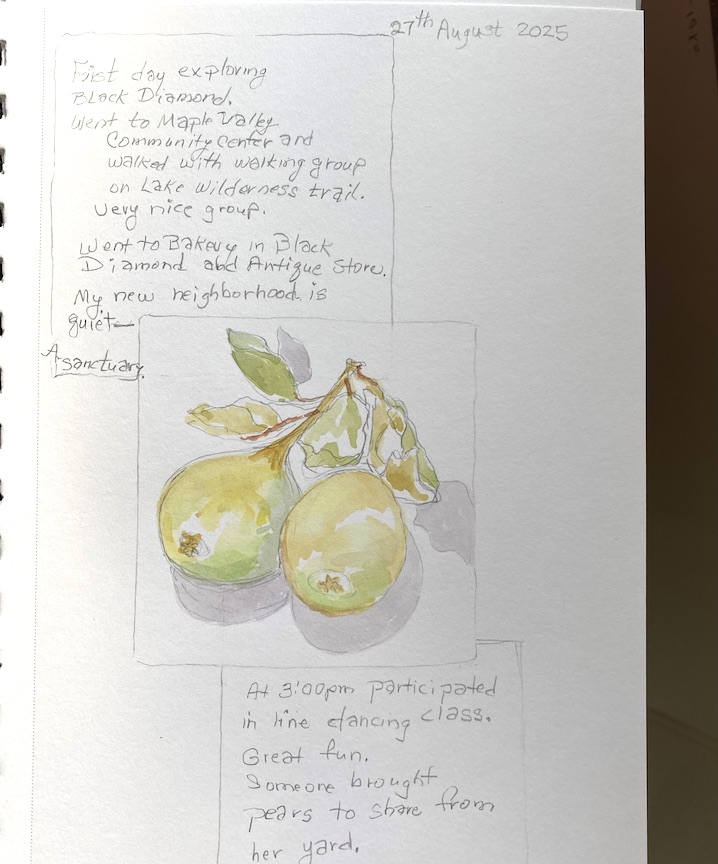 27th August 2025
First day exploring
Black Diamond.
Went to Maple Valley
Community Center and
walked with walking group
on Lake Wilderness trail.
Very nice group.
Went to Bakery in Black
Diamond abd Antique Store.
My new neighborhood is
quiet—
A sanctuary.
At 3:00pm participated
in line dancing class.
Great fun.
Someone brought
pears to share from
her yard.